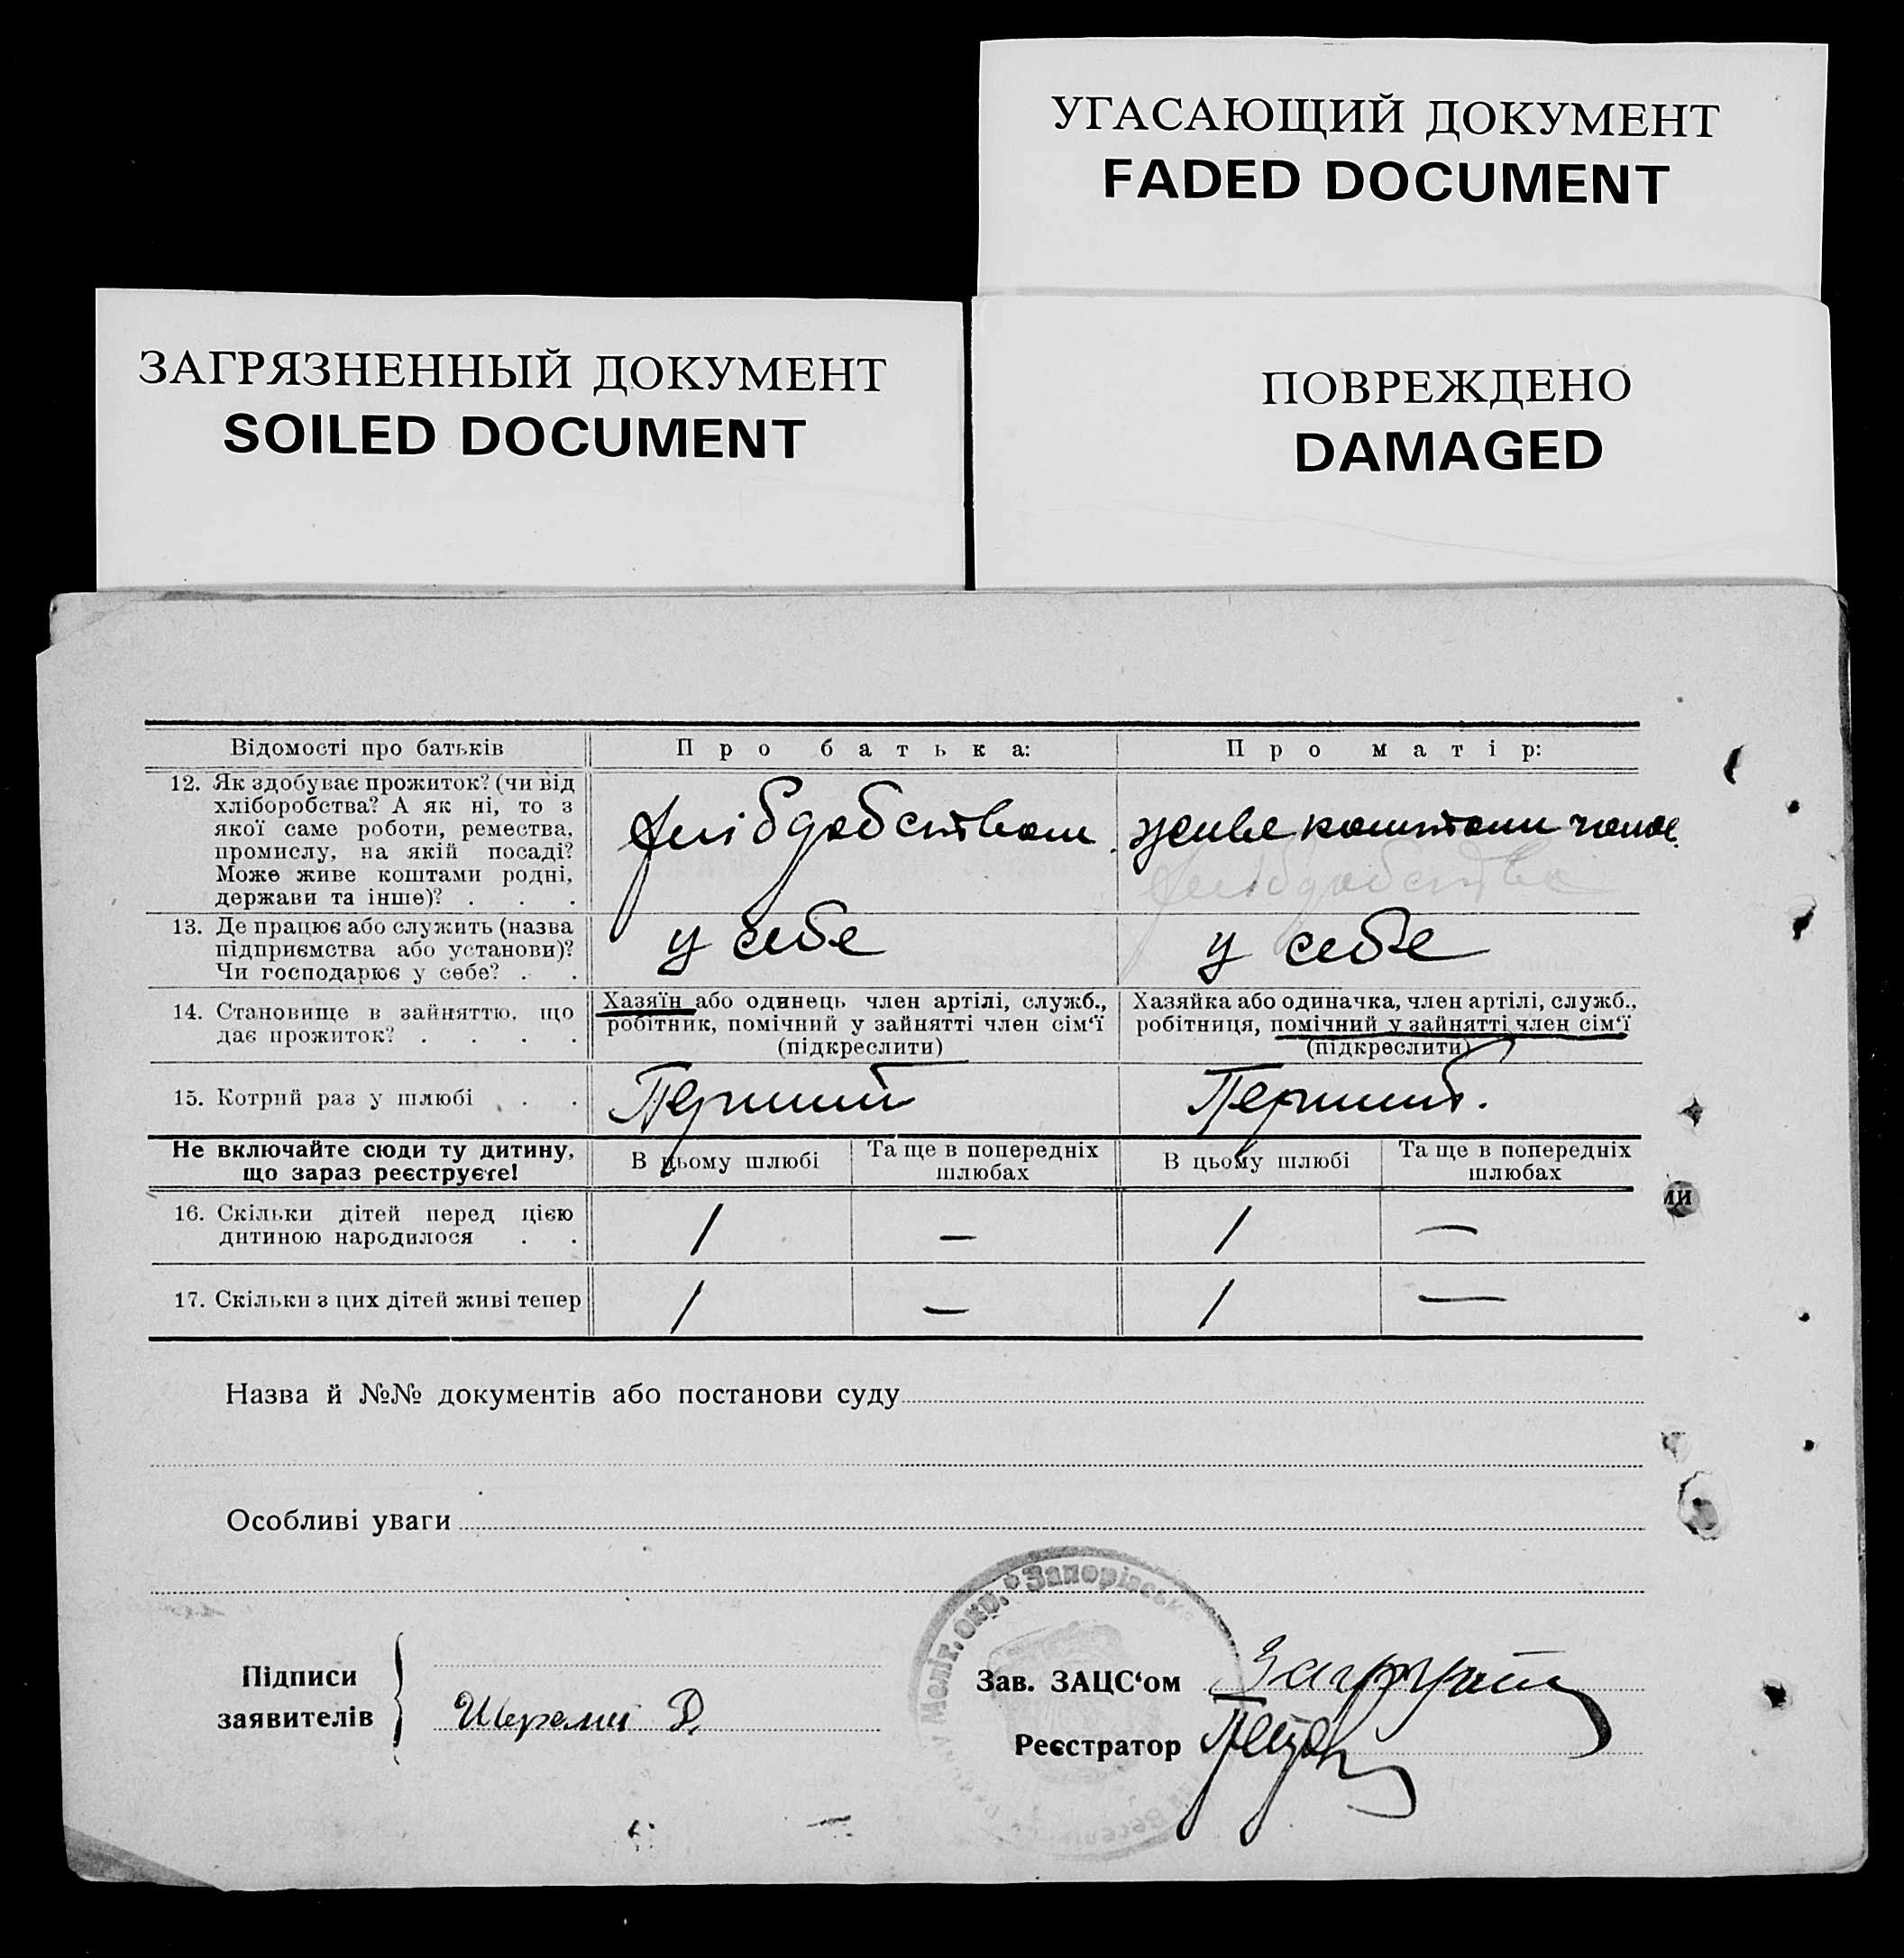 УГАСАЮЩИЙ ДОКУМЕНТ
FADED DOCUMENT
ЗАГРЯЗНЕННЫЙ ДОКУМЕНТ
SOILED DOCUMENT
ПОВРЕЖДЕНО
DAMAGED
Відомості про батьків
Про батька:
Про матір:
12. Як здобуває прожиток? (чи від
хліборобства? А як ні, то з
якої саме роботи, ремества,
промислу, на якій посаді?
Може живе коштами родні,
держави та інше)? . . .
живе коштами
13. Де працює або служить (назва
підприємства або установи)?
Чи господарює у себе? . .
у себе
у себе
14. Становище в зайняттю, що
дає прожиток? . . . .
Хазяїн або одинець член артілі, служб.,
робітник, помічний у зайнятті член сім'ї
(підкреслити)
Хазяйка або одиначка, член артілі, служб.,
робітниця, помічний у зайнятті член сім'ї
(підкреслити)
15. Котрий раз у шлюбі . .
Перший
Перший.
Не включайте сюди ту дитину,
що зараз реєструєте!
В цьому шлюбі
Та ще в попередніх
шлюбах
В цьому шлюбі
Та ще в попередніх
шлюбах
16. Скільки дітей перед цією
дитиною народилося . .
1
—
1
—
17. Скільки з цих дітей живі тепер
1
—
1
—
ми
Назва й №№ документів або постанови суду
Особливі уваги
Меліт. окр. * Запорізськ
Підписи
заявителів
Зав. ЗАЦС'ом
Реєстратор